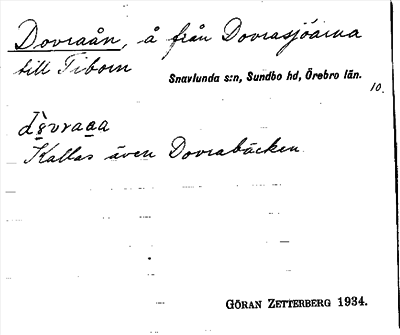 Dovraån, å från Dovrasjöarna
till Tiborn
Snavlunda s:n, Sundbo hd, Örebro län.
10.
Kallas även Dovrabäcken.
GÖRAN ZETTERBERG 1934.